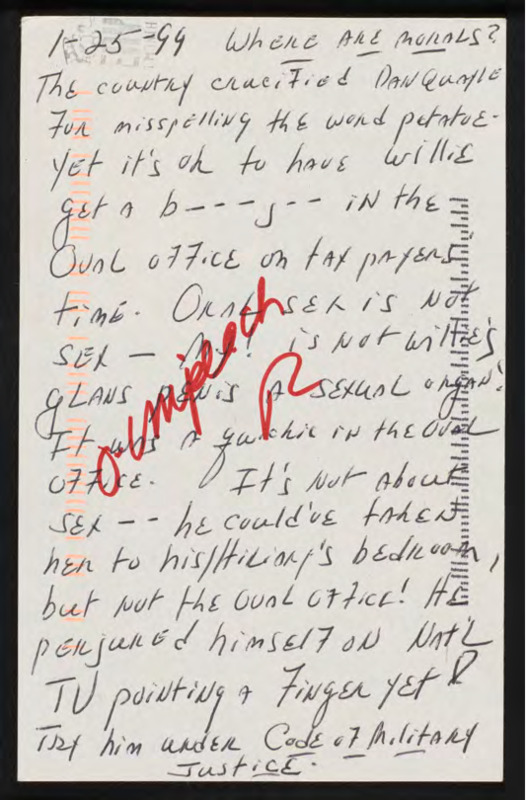 1-25-99 WHERE ARE MORALS?
THE COUNTRY CRUCIFIED DAN QUAYLE
FOR MISSPELLING THE WORD POTATOE -
YET it's ok to have Willie
get a b---j-- IN the
OVAL OFFICE ON TAX PAYERS'
time. ORAL SEX IS NOT
SEX — ! is NOT Willie's
GLANS PENIS A SEXUAL ORGAN?
It was a quickie in the OVAL
OFFICE. It's NOT About
SEX -- he could've taken
her to his/Hillary's bedroom,
but NOT the OVAL OFFICE! He
perjured himself ON NAT'L
TV pointing a Finger yet!
Try him under Code of Military
Justice.
impeach
R